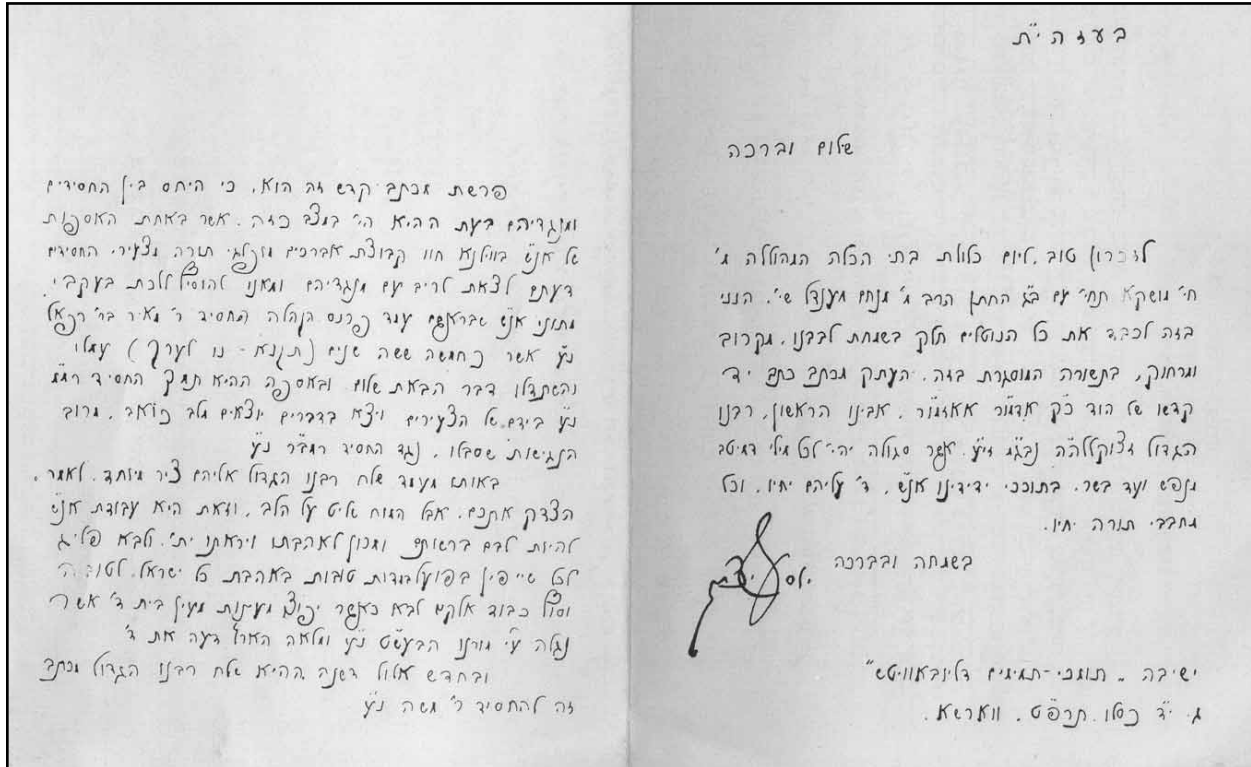 בעזהי״ת
שלום וברכה
לזכרון טוב, ליום כלולת בתי הכלה המהוללה מ׳
חי׳ מושקא תחי׳ עם ב״ג החתן הרב מ׳ מנחם מענדל שי׳. הנני
בזה לכבד את כל הנוטלים חלק בשמחת לבבנו, מקרוב
ומרחוק, בתשורה המוסגרת בזה. העתק מכתב כתב יד
קדשו של הוד כ״ק אדמו״ר אאזמו״ר. אבינו הראשון, רבנו
הגדול זצוקללה״ה נבג״מ זי״ע. אשר סגולה יהי׳ לכל מילי דמיטב
מנפש ועד בשר. בתוככי ידידינו אנ״ש, ד׳ עליהם יחיו, וכל
מחבבי תורה יחיו.
בשמחה ובברכה
ישיבה „תומכי-תמימים דליובאוויטש״
ג. י״ד כסלו. תרפ״ט. ווארשא.
פרשת מכתב קדש זה הוא, כי היחס בין החסידים
ומנגדיהם בעת ההיא הי׳ במצב כזה. אשר באחת האספות
של אנ״ש בווילנא חוו קבוצת אברכים מופלגי תורה מצעירי החסידים
דעתם לצאת לריב עם מנגדיהם ומאנו להוסיל ללכת בעקבי
מתוני אנ״ש שבראשם עמד פרנס הקהלה החסיד ר׳ מאיר בר׳ רפאל
נ״ע אשר כחמשה ששה שנים (תקנא - נו לערך) עמלו
והשתדלו דבר הבאת שלום. ובאספה ההיא תמך החסיד רמ״מ
נ״ע בידם של הצעירים ויצא בדברים יוצאים מלב כואב, מרוב
הנגישות שסבלו. נגד החסיד רמב״ר נ״ע
באותו מעמד שלח רבנו הגדול אליהם ציר מיוחד. לאמר.
הצדק אתכם, אבל המוח שליט על הלב. וזאת היא עבודת אנ״ש
להיות לבם ברשותם ומכון לאהבתו ויראתו ית׳. ולבא פליג
לכל שייפין בפועל במדות טובות באהבת כל ישראל. לטובה
וסו״ל כבוד אלקים לבא כאשר יפוצו מעינות מעין בית ד׳ אשר
נגלה ע״י מורנו הבעש״ט נ״ע ומלאה הארץ דעה את ד׳
ובחדש אלול דשנה ההיא שלח רבנו הגדול מכתב
זה להחסיד ר׳ משה נ״ע